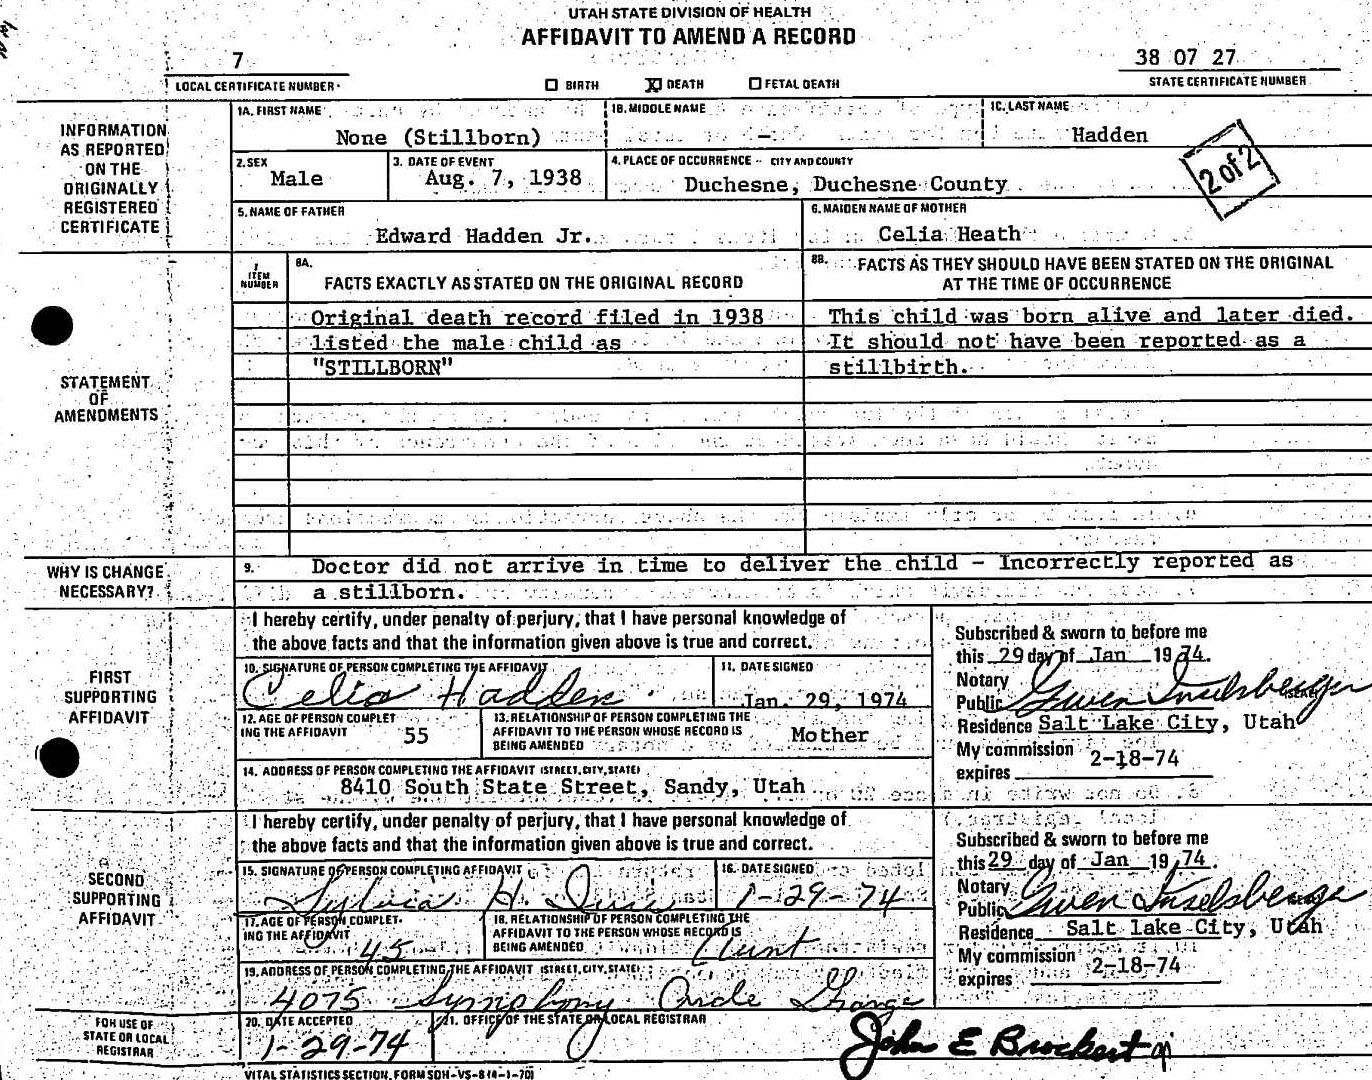 UTAH STATE DIVISION OF HEALTH
AFFIDAVIT TO AMEND A RECORD
7
LOCAL CERTIFICATE NUMBER
☐ BIRTH ☒ DEATH ☐ FETAL DEATH
38 07 27
STATE CERTIFICATE NUMBER
INFORMATION
AS REPORTED
ON THE
ORIGINALLY
REGISTERED
CERTIFICATE
1A. FIRST NAME
None (Stillborn)
1B. MIDDLE NAME
-
1C. LAST NAME
Hadden
2. SEX
Male
3. DATE OF EVENT
Aug. 7, 1938
4. PLACE OF OCCURRENCE - CITY AND COUNTY
Duchesne, Duchesne County
2 of 2
5. NAME OF FATHER
Edward Hadden Jr.
6. MAIDEN NAME OF MOTHER
Celia Heath
STATEMENT
OF
AMENDMENTS
7
ITEM
NUMBER
8A.
FACTS EXACTLY AS STATED ON THE ORIGINAL RECORD
8B. FACTS AS THEY SHOULD HAVE BEEN STATED ON THE ORIGINAL
AT THE TIME OF OCCURRENCE
Original death record filed in 1938
listed the male child as
"STILLBORN"
This child was born alive and later died.
It should not have been reported as a
stillbirth.
WHY IS CHANGE
NECESSARY?
9. Doctor did not arrive in time to deliver the child - Incorrectly reported as
a stillborn.
FIRST
SUPPORTING
AFFIDAVIT
I hereby certify, under penalty of perjury, that I have personal knowledge of
the above facts and that the information given above is true and correct.
10. SIGNATURE OF PERSON COMPLETING THE AFFIDAVIT
Celia Hadden
11. DATE SIGNED
Jan. 29, 1974
12. AGE OF PERSON COMPLET
ING THE AFFIDAVIT 55
13. RELATIONSHIP OF PERSON COMPLETING THE
AFFIDAVIT TO THE PERSON WHOSE RECORD IS
BEING AMENDED
Mother
14. ADDRESS OF PERSON COMPLETING THE AFFIDAVIT (STREET, CITY, STATE)
8410 South State Street, Sandy, Utah
Subscribed & sworn to before me
this 29 day of Jan 19 74.
Notary
Public Gwen Inselsberger
(SEAL)
Residence Salt Lake City, Utah
My commission
expires 2-18-74
SECOND
SUPPORTING
AFFIDAVIT
I hereby certify, under penalty of perjury, that I have personal knowledge of
the above facts and that the information given above is true and correct.
15. SIGNATURE OF PERSON COMPLETING AFFIDAVIT
Sylvia H.
16. DATE SIGNED
1-29-74
17. AGE OF PERSON COMPLET-
ING THE AFFIDAVIT
45
18. RELATIONSHIP OF PERSON COMPLETING THE
AFFIDAVIT TO THE PERSON WHOSE RECORD IS
BEING AMENDED
Aunt
19. ADDRESS OF PERSON COMPLETING THE AFFIDAVIT (STREET, CITY, STATE)
4075 Symphony Circle Granger
Subscribed & sworn to before me
this 29 day of Jan 19 74.
Notary
Public Gwen Inselsberger
Residence Salt lake City, Utah
My commission
expires 2-18-74
FOR USE OF
STATE OR LOCAL
REGISTRAR
20. DATE ACCEPTED
1-29-74
21. OFFICE OF THE STATE OR LOCAL REGISTRAR
John E Brockert
VITAL STATISTICS SECTION, FORM SDH-VS-8 (4-1-70)